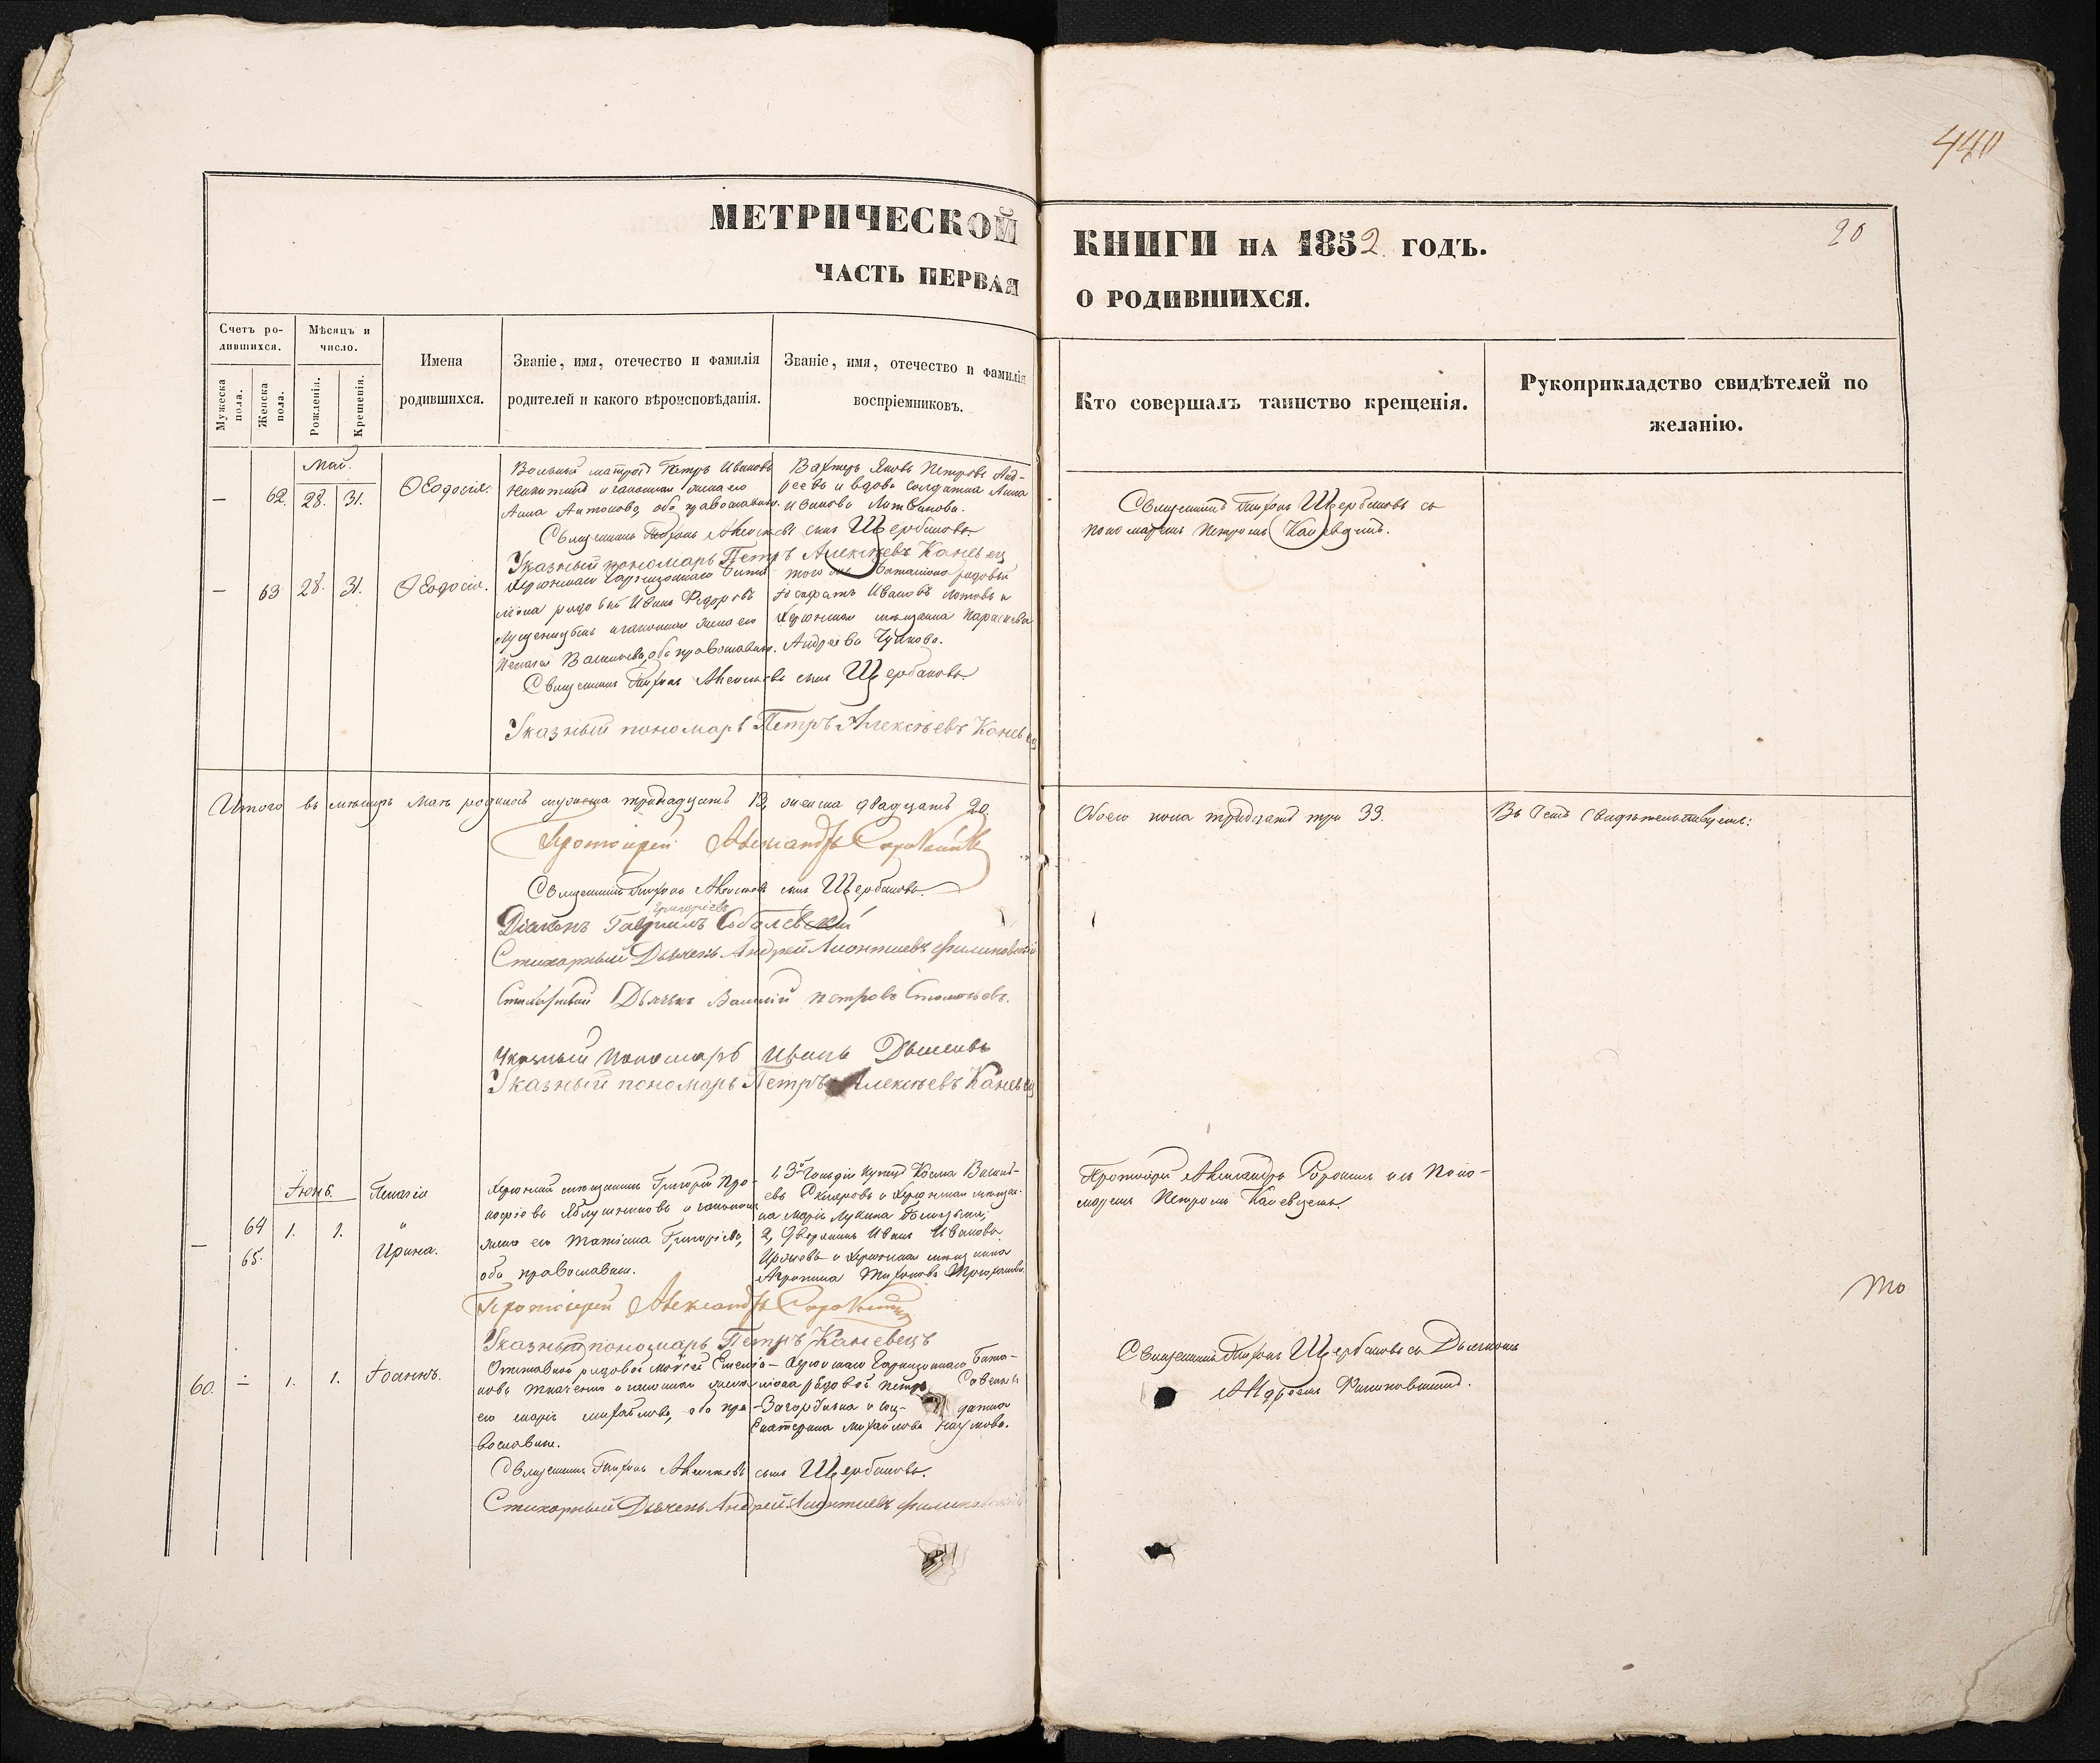 440
МЕТРИЧЕСКОЙ
КНИГИ НА 1852 ГОДЪ.
20
ЧАСТЬ ПЕРВАЯ
О РОДИВШИХСЯ.
Счетъ ро-
дившихся.
Мужеска
пола.
Женска
пола.
Мѣсяцъ и
число.
Рожденія.
Крещенія.
Имена
родившихся.
Званіе, имя, отечество и фамилія
родителей и какого вѣроисповѣданія.
Званіе, имя, отечество и фамилія
воспріемниковъ.
Кто совершалъ таинство крещенія.
Рукоприкладство свидѣтелей по
желанію.
Май.
— 62. 28. 31. Ѳеодосія.
Вольный матросъ Петръ Ивановъ
и законная жена его
Анна Антонова, оба православные.
Вахтеръ Яковъ Петровъ Анд-
реевъ и вдова солдатка Анна
Иванова Литвинова.
Священникъ Тихонъ Щербаковъ съ
пономаремъ Петромъ Каневцемъ.
Священникъ Тихонъ Алексѣевъ сынъ Щербаковъ.
Указный пономарь Петръ Алексѣевъ Каневец
— 63 28. 31. Ѳеодосія.
Херсонскаго Гарнизоннаго Бата-
ліона рядовый Иванъ Федоровъ
и законная жена его
Васильева, оба православные.
того же баталіона рядовый
Иосафатъ Ивановъ и
Херсонская мѣщанка Параскева
Андреева Чуйкова.
Священникъ Тихонъ Алексѣевъ сынъ Щербаковъ.
Указный пономарь Петръ Алексѣевъ Каневец
Итого въ мѣсяцѣ маѣ родилось мужеска тринадцать 13, женска двадцать 20.
Обоего пола тридцать три 33.
Въ семъ свидѣтельствуемъ:
Протоіерей Александръ
Священникъ Тихонъ Алексѣевъ сынъ Щербаковъ.
Григоріевъ
Діаконъ Гавріилъ Соболевскій
Стихарный Дьячекъ Андрей Леонтиевъ Филиповскій
Стихарный Дьячекъ Василій Петровъ
Указный Пономарь Иванъ
Указный пономарь Петръ Алексѣевъ Каневец
Іюнь.
— 64 65. 1. 1. Пелагія
"
Ирина.
Херсонскій мѣщанинъ Григорій Про-
кофіевъ и законная
жена его Татіана Григоріева,
оба православные.
1, 3й гильдіи купецъ Косма Василь-
евъ Скляровъ и Херсонская мѣщан-
ка Марія Лукина
2, Дворянинъ Иванъ Ивановъ
и Херсонская мѣщанка
Агрипина Тихонова
Протоіерей Александръ съ Поно-
маремъ Петромъ Каневцемъ.
Протоіерей Александръ
Указный пономарь Петръ Каневецъ
то
60. — 1. 1. Іоаннъ.
Отставной рядовой Моисей Емелья-
новъ Ткаченко и законная жена
его Марія Михайлова, оба пра-
вославные.
Херсонскаго Гарнизоннаго Бата-
ліона рядовой Петръ Савельевъ
и сол- датка
Екатерина Михайлова Наумова.
Священникъ Тихонъ Щербаковъ съ Дьячкомъ
Андреемъ Филиповскимъ.
Священникъ Тихонъ Алексѣевъ сынъ Щербаковъ.
Стихарный Дьячекъ Андрей Леонтиевъ Филиповскій